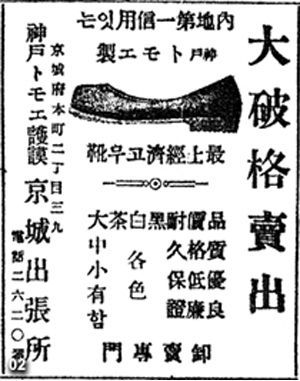 大破格賣出
內地第一信用잇는
神戸トモエ製
最上經濟고무靴
品質優良
價格低廉
耐久保證
黑白茶各色
大中小有함
卸賣專門
京城府本町二丁目三九
神戸トモエ護謨京城出張所
電話二六二〇番
02